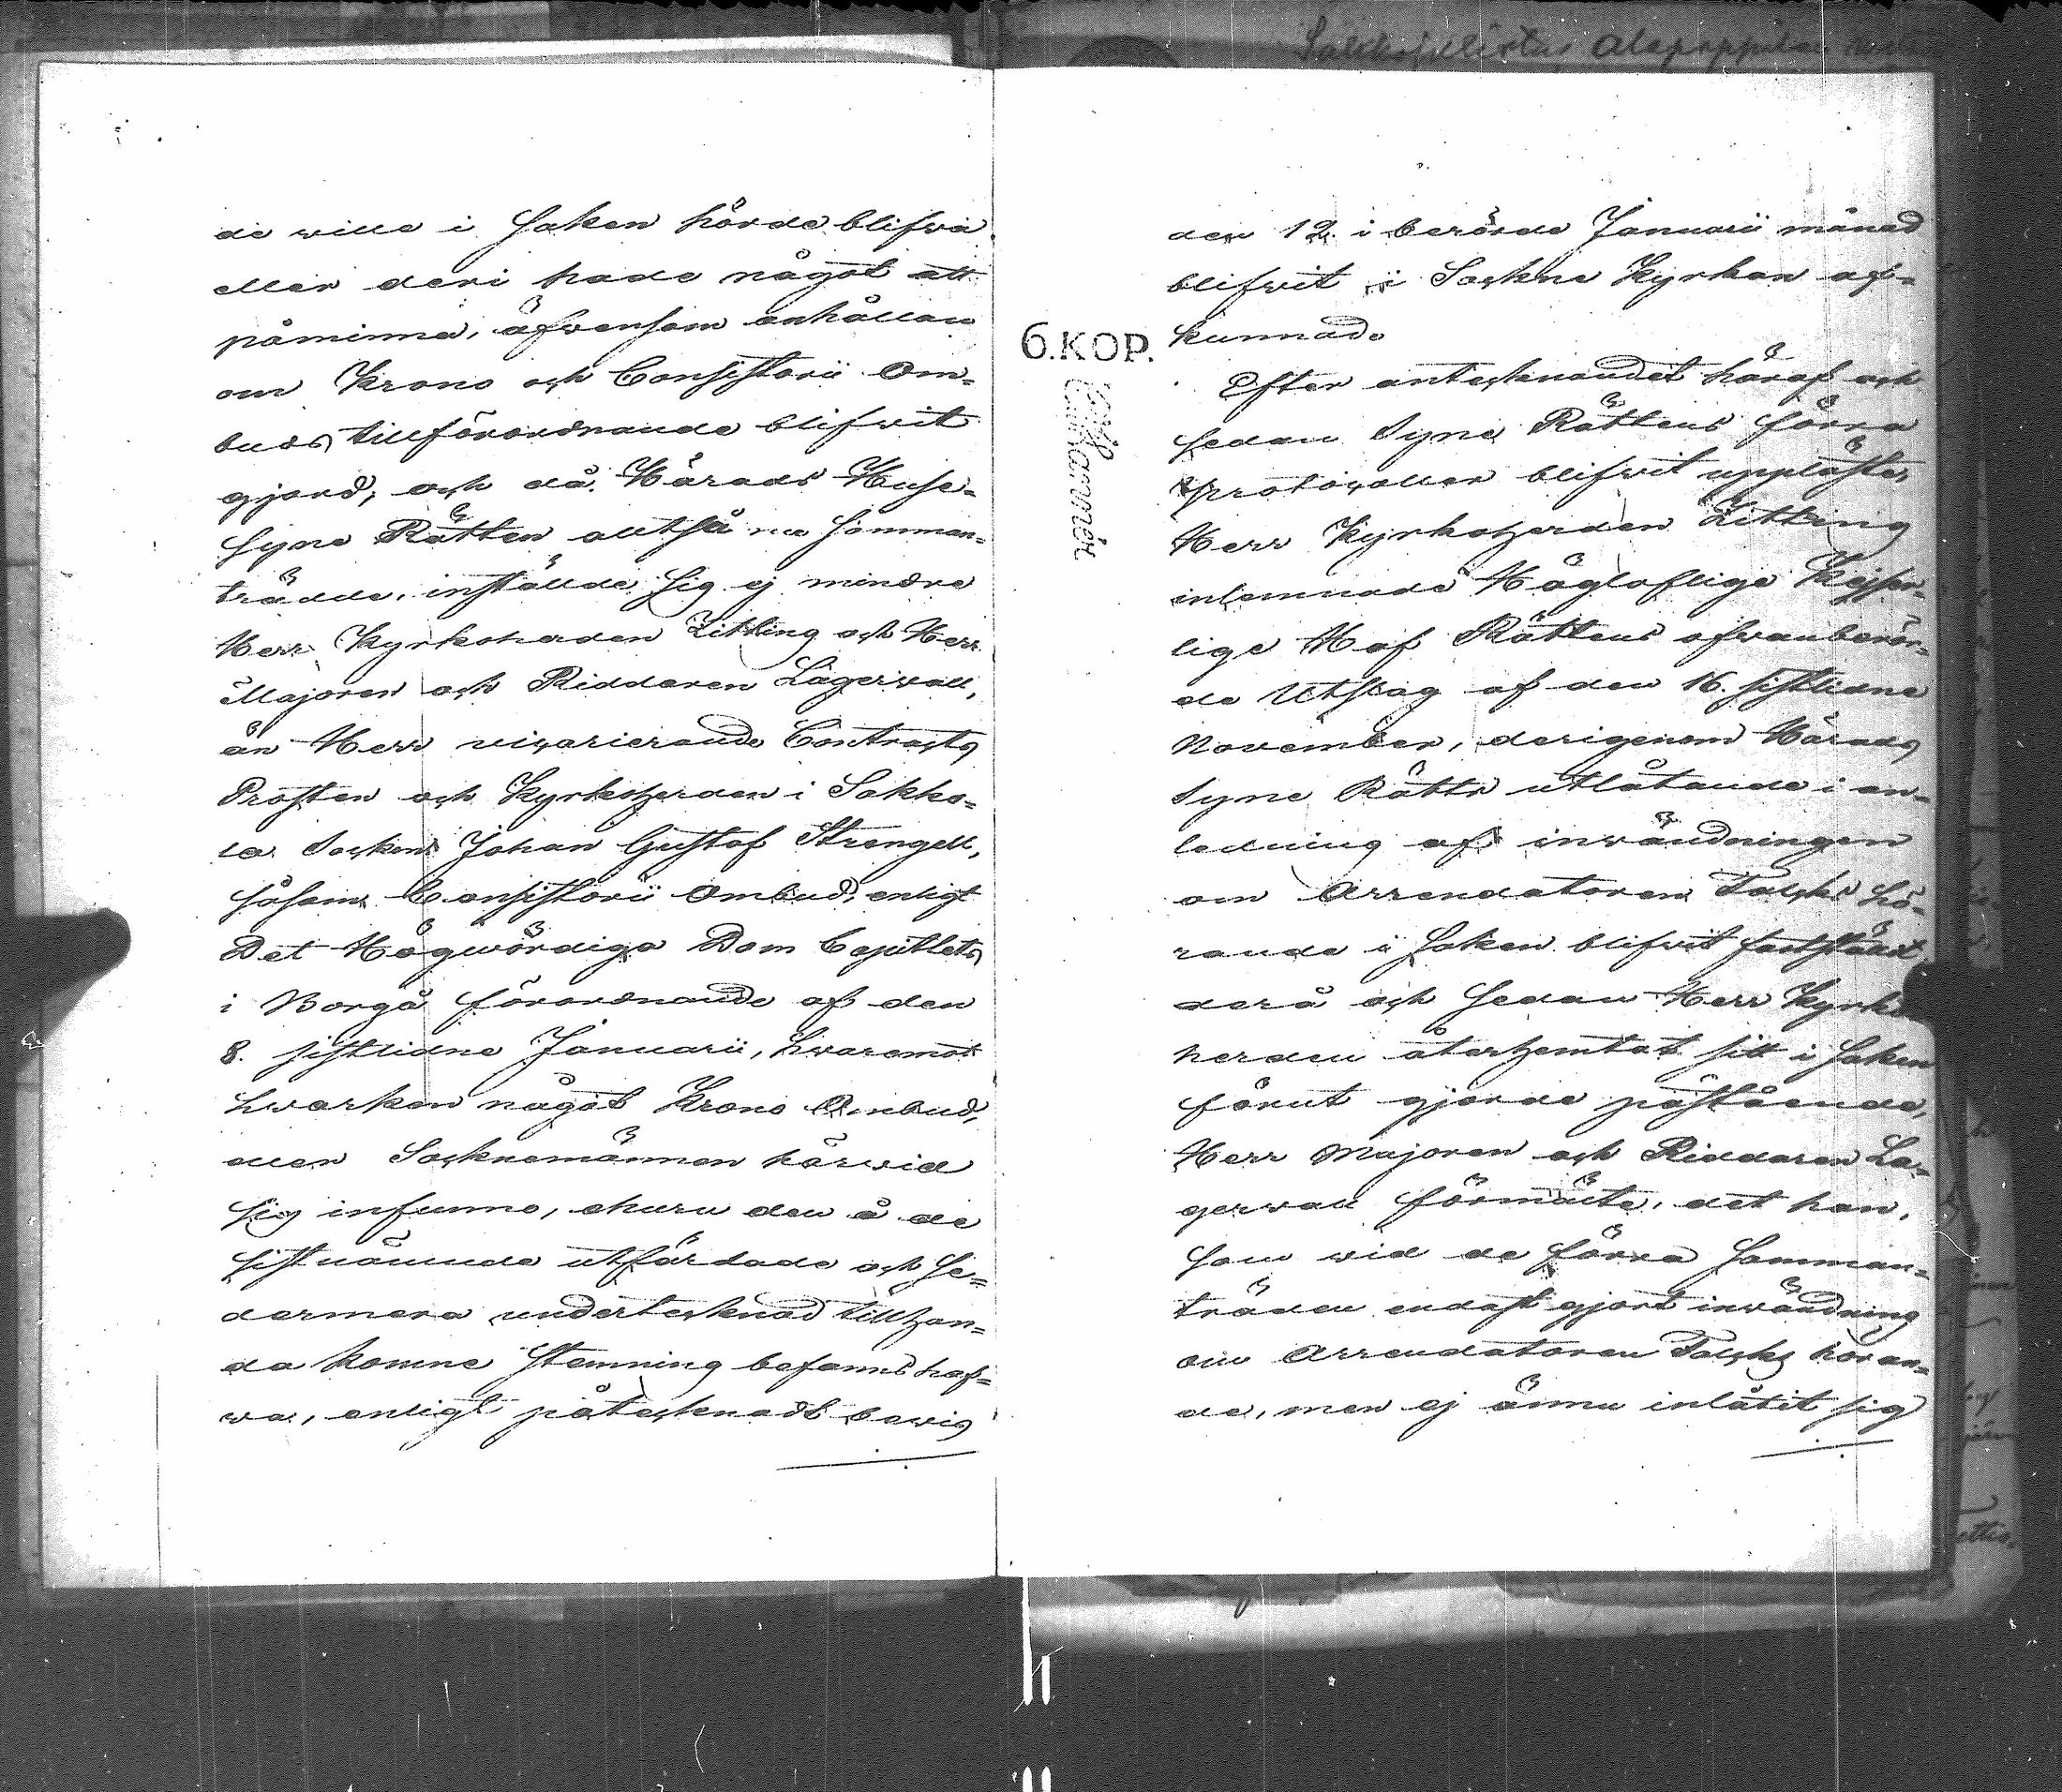 de wille i saken hörde blifwa
eller deri hade något att
påminna, äfwensom anhållan
om Krono och Consistorii Om-
buds tillförordnande blifwit
gjord; och då Härads Huse-
syne Rätten alltså nu samman-
trädde, inställde sig ej mindre
Herr Kyrkoherden Zitting och Herr
Majoren och Riddaren Lagerwall,
än Herr vicarierande Contracts
Prosten och Kyrkoherden i Sakko-
la Socken Johan Gustaf Strengell,
såsom Consistorii Ombud, enligt
Det Högwördiga Dom Capitlets
i Borgå förordnande af den
8. sistlidne Januarii, hwaremot
hwarken något Krono Ombud,
eller Socknemännen härwid
sig infunno, ehuru den å de
sistnämnde utfärdade och se-
dermera undertecknad tillhan-
da komne stemning befanns haf-
wa, enligt påtecknadt bewis
den 12. i berörde Januarii månad
blifwit i Sockne Kyrkan af-
kunnad.
6.KOP.
Efter antecknandet häraf och
sedan Syne Rättens förra
protocoller blifwit uppläste,
Herr Kyrkoherden Zitting
inlemnade Högloflige Kejser-
lige Hof Rättens ofwanberör-
de Utslag af den 16. sistlidne
November, derigenom Härads
Syne Rätts utlåtande i an-
ledning af inwändningen
om Arrendatoren Falcks hö-
rande i saken blifwit fastställdt,
derå och sedan Herr Kyrko
herden återhemtat sitt i saken
förut gjorde påstående,
Herr Majoren och Riddaren La-
gerwall förmälte, det han,
som wid de förra samman-
träden endast gjort inwändning
om Arrendatoren Falcks höran-
de, men ej ännu inlåtit sig